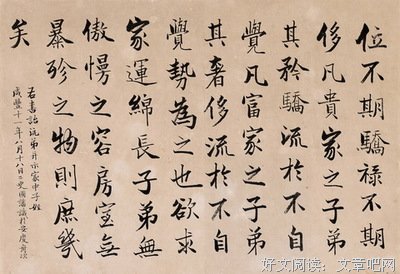 位不期驕祿不期
侈凡貴家之子弟
其矜驕流於不自
覺凡富家之子弟
其奢侈流於不自
覺勢為之也欲求
家運綿長子弟無
傲慢之容房室無
暴殄之物則庶幾
矣
右書詒沅弟并示家中子姪
咸豐十一年八月十八日二更國藩識於安慶舟次
好文阅读：文章吧网